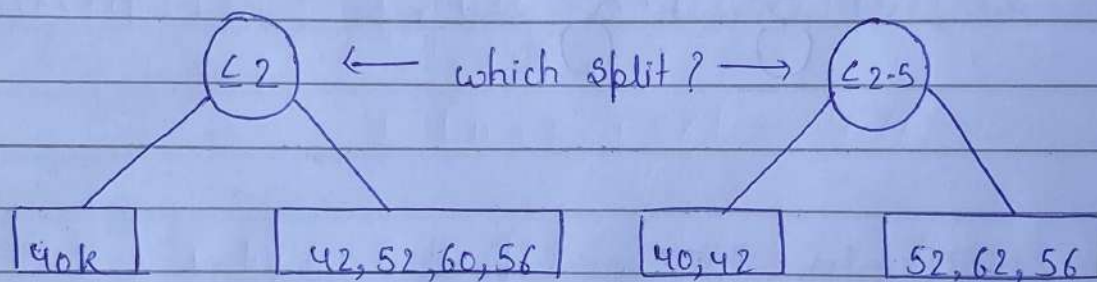 ≤2 ← which split? → ≤2.5
40k 42, 52, 60, 56 40, 42 52, 62, 56